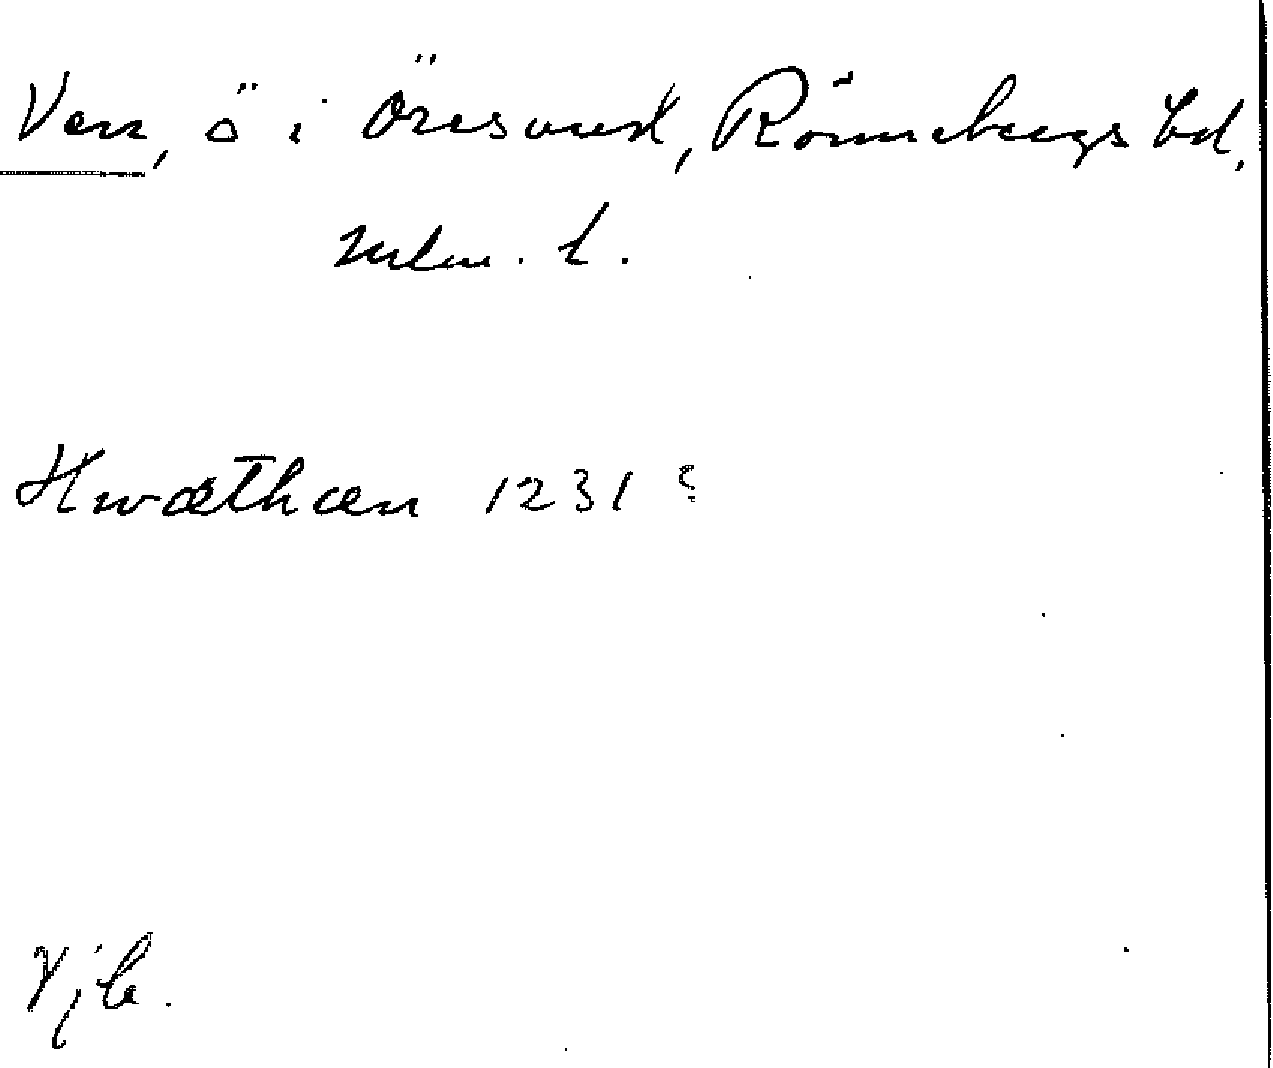 Ven, ö i Öresund, Rönnebergs hd,
Mlm. l.
Hwæthæn 1231 ?
Vjb.